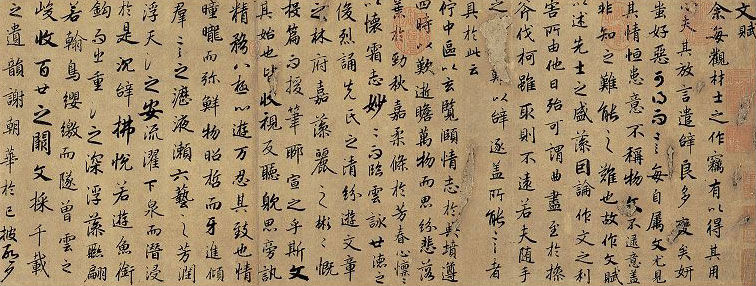 文賦
余每觀材士之作竊有以得其用
心夫其放言遣辞良多變矣妍
蚩好惡可得而言每自属文尤見
其情恒患意不稱物文不逮意蓋
非知之難能之難也故作文賦
以述先士之盛藻因論作文之利
害所由他日殆可謂曲盡至於操
斧伐柯雖取則不遠若夫随手
難以辞逐蓋所能言者
具於此云
佇中區以玄覽頤情志於典墳遵
四時以歎逝瞻萬物而思紛悲落
葉於勁秋嘉柔條於芳春心懍〻
以懷霜志妙〻而臨雲詠世德之
俊烈誦先民之清紛遊文章
之林府嘉藻麗之彬〻慨
投篇而援筆聊宣之乎斯文
其始也皆收視反聽耽思旁訊
精騖八極心遊万忍其致也情
曈曨而弥鮮物昭晢而互進傾
群言之瀝液漱六藝之芳潤
浮天淵之安流濯下泉而潛浸
於是沉辞怫悦若遊魚銜
鈎而出重淵之深浮藻聯翩
若翰鳥纓繳而墜曾雲之
峻收百世之闕文採千載
之遺韻謝朝華於已披啓夕